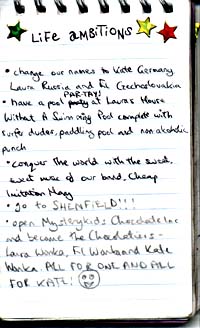 LiFE AMBiTiONS
• change our names to Kate Germany
Laura Russia and Fi Czechoslovakia
PAR-TAY!
• have a pool party at Lauras House
Without A Swimming Pool complete with
surfer dudes, paddling pool and non alcoholic
punch
• conquer the world with the sweet,
sweet music of our band, Cheap
Imitation
• go to SHENFIELD!!!
• open Mystery kids Chocolate Inc
and become The Chocolatiers -
Laura Wonka, Fi Wonka and Kate
Wonka. ALL FOR ONE AND ALL
FOR KATE!